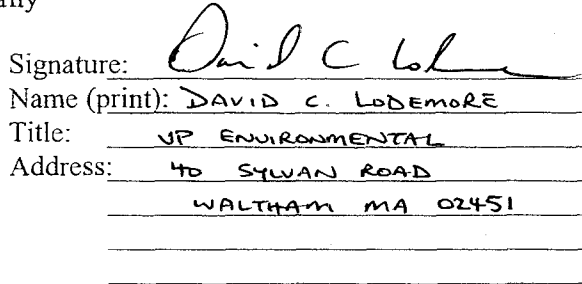 Signature: David C Lo
Name (print): DAVID C. LODEMORE
Title: VP ENVIRONMENTAL
Address: 40 SYLVAN ROAD
WALTHAM MA 02451